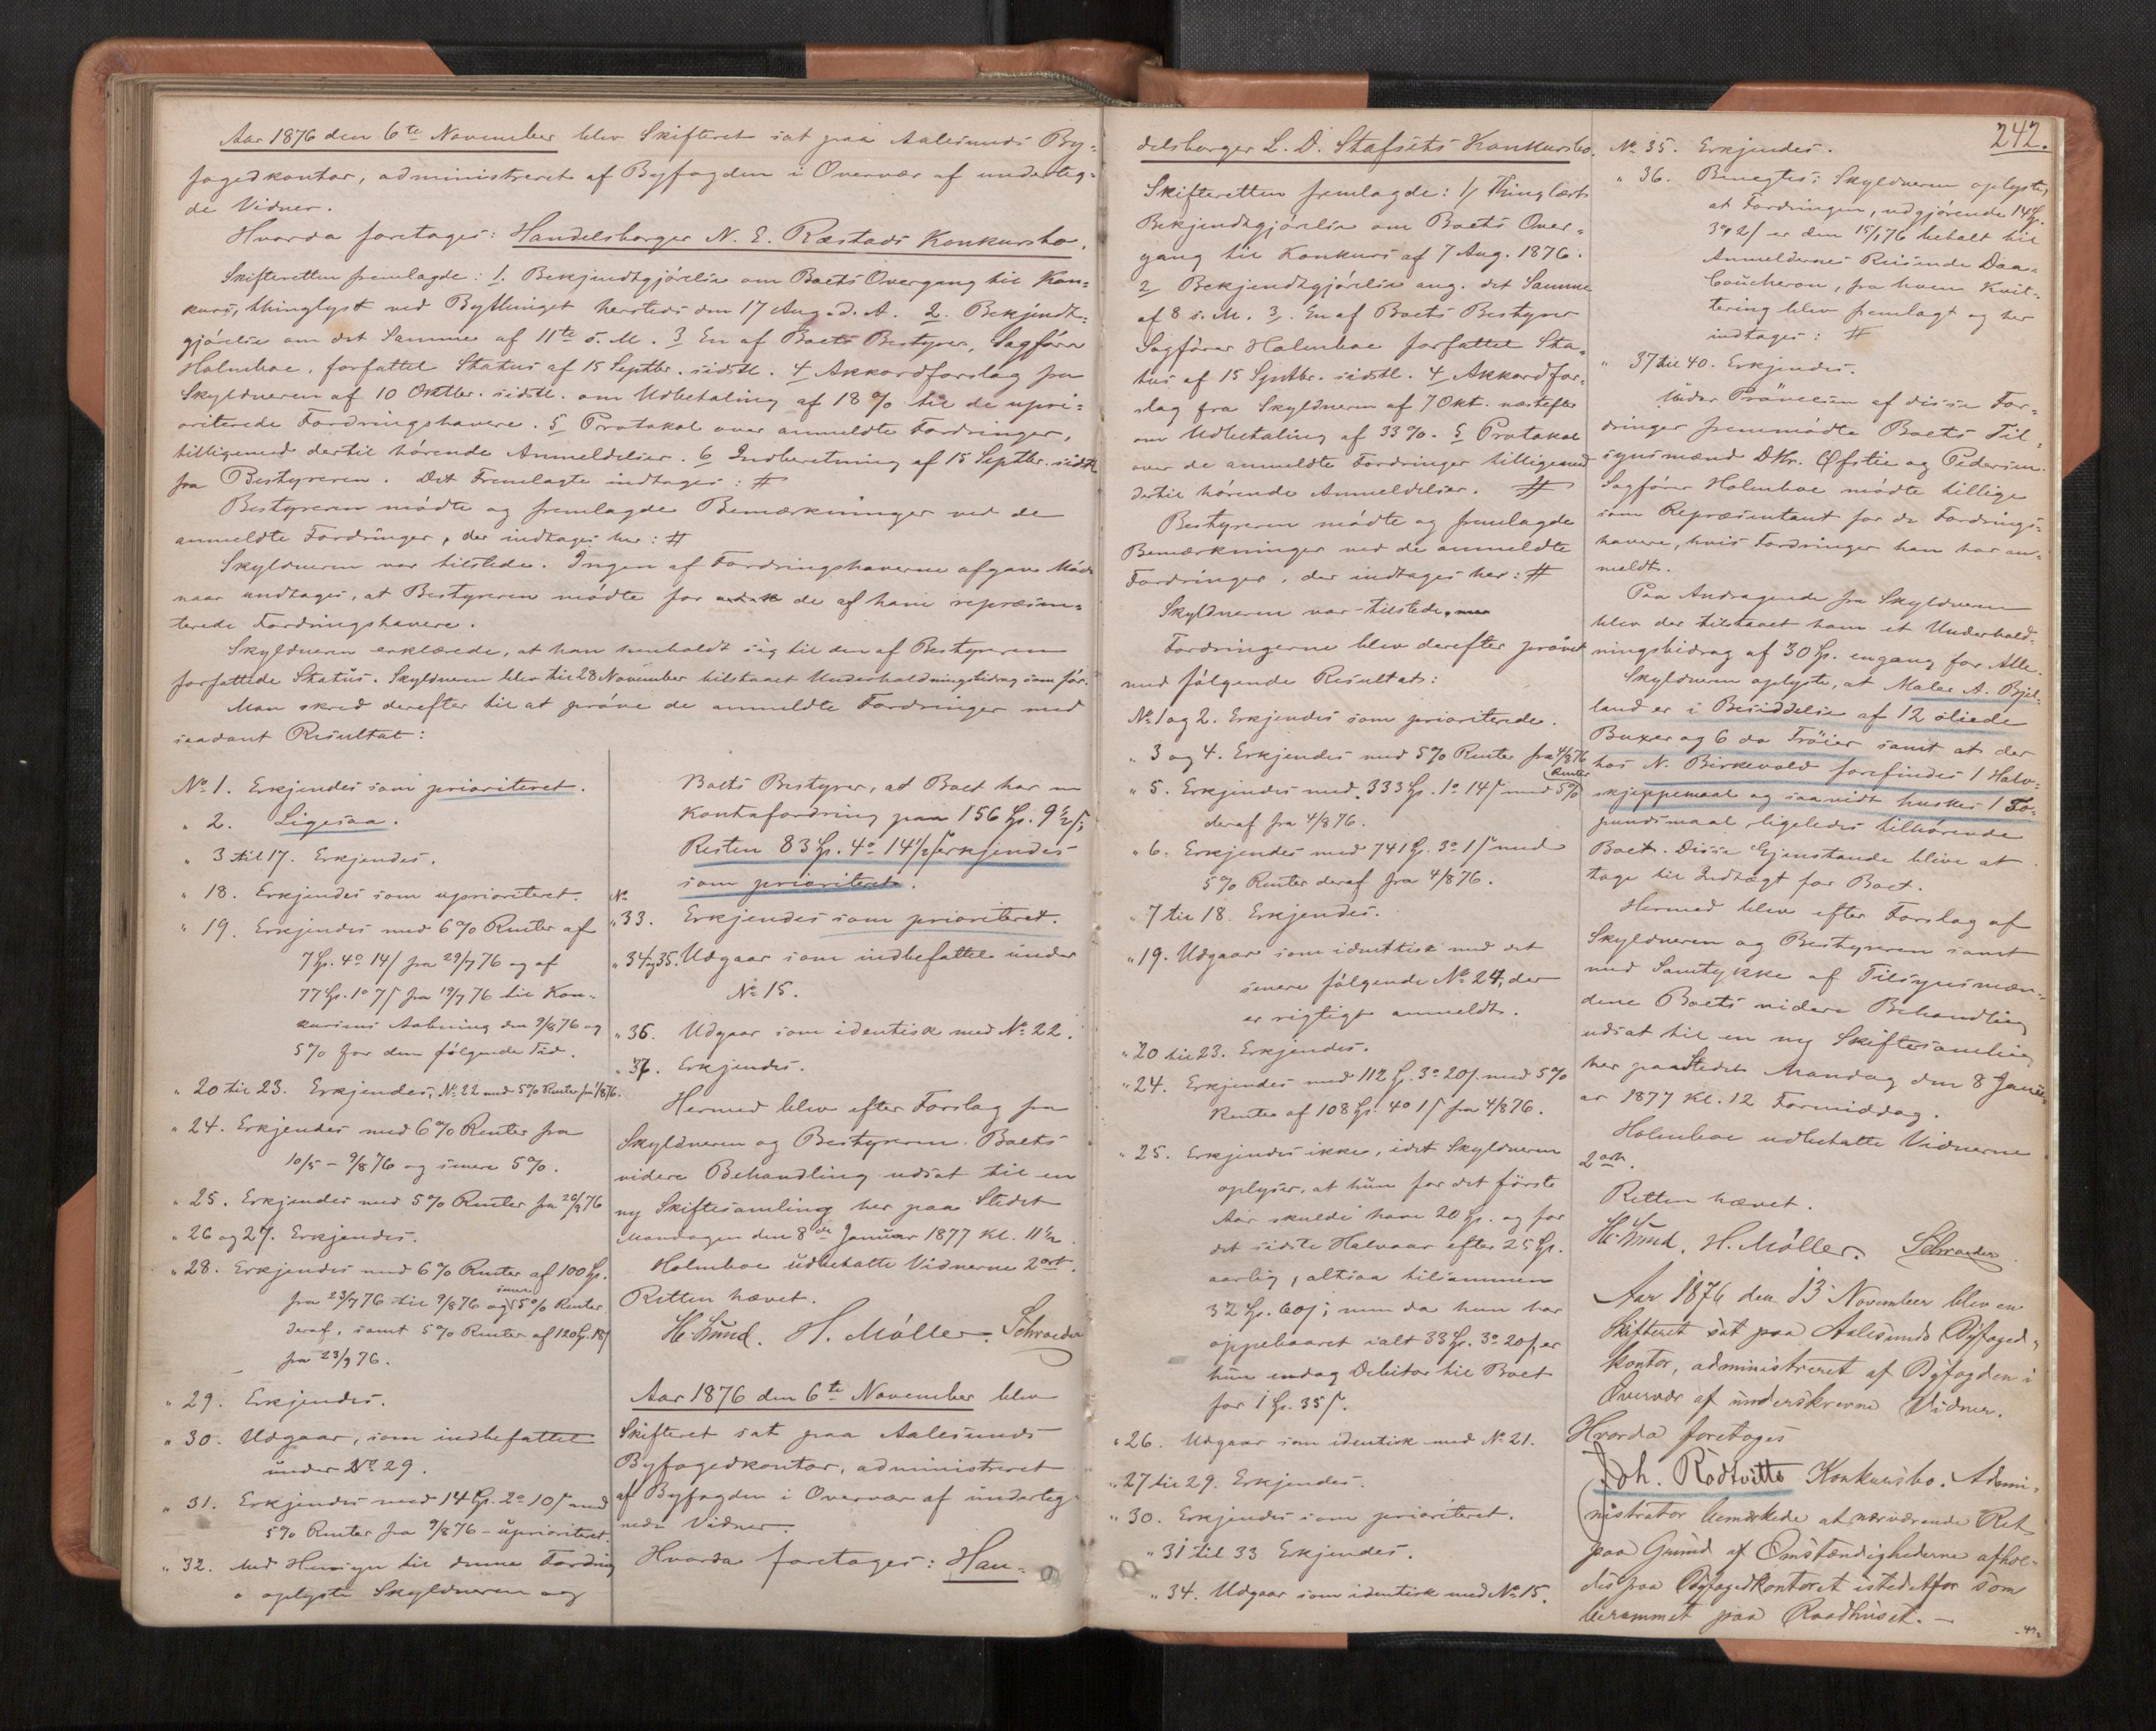 Aar 1876 den 6te November blev Skifteret sat paa Aalesunds By-
fogedkontor, administreret af Byfogden i Overvær af underteg-
de Vidner.
Hvorda foretages: Handelsborger N. E. Ræstads Konkursbo.
Skifteretten fremlagde: 1. Bekjendtgjørelse om Boets Overgang til Kon-
kurs, thinglyst ved Bythinget hersteds den 17 Aug. d. A. 2. Bekjendt-
gjørelse om det Samme af 11te s. M. 3 En af Boets Bestyrer, Sagfører
Holmboe, forfattet Status af 15 Septbr. sidstl. 4 Akkordforslag fra
Skyldneren af 10 Oktbr. sidstl. om Udbetaling af 18 % til de upri-
oriterede Fordringshavere. 5 Protokol over anmeldte Fordringer,
tilligemed dertil hørende Anmeldelser. 6 Indberetning af 15 Septbr. sidstl.
fra Bestyreren. Det Fremlagte indtages: #
Bestyreren mødte og fremlagde Bemærkninger ved de
anmeldte Fordringer, der indtages her: #
Skyldneren var tilstede. Ingen af Fordringshaverne afgave Møde
naar undtages, at Bestyreren mødte for de af ham repræsen-
terede Fordringshavere.
Skyldneren erklærede, at han henholdt sig til den af Bestyreren
forfattede Status. Skyldneren blev til 28 November tilstaaet Underholdningsbidrag som før.
Man skred derefter til at prøve de anmeldte Fordringer med
saadant Resultat:
No 1. Erkjendes som prioriteret.
" 2. Ligesaa.
" 3 til 17. Erkjendes.
" 18. Erkjendes som uprioriteret.
" 19. Erkjendes med 6% Renter af
7 Sp. 4o 14 s fra 29/7 76 og af
77 Sp. 1o 7 s fra 19/7 76 til Kon-
kursens Aabning den 9/8 76 og
5% for den følgende Tid.
" 20 til 23. Erkjendes, No 22 med 5% Renter fra 1/8 76.
" 24. Erkjendes med 6% Renter fra
10/5 - 9/8 76 og senere 5%.
" 25. Erkjendes med 5% Renter fra 20/9 76
" 26 og 27. Erkjendes.
" 28. Erkjendes med 6% Renter af 100 Sp.
fra 23/7 76 til 9/8 76 og senere 5% Renter
deraf, samt 5% Renter af 120 Sp. 18 s
fra 23/9 76.
" 29. Erkjendes.
" 30. Udgaar, som indbefattet
under No 29.
" 31. Erkjendes med 14 Sp. 2o 10 s med
5% Renter fra 9/8 76 - uprioriteret.
" 32. Med Hensyn til denne Fordring
oplyste Skyldneren og
Boets Bestyrer, at Boet har en
Kontrafordring paa 156 Sp. 9 1/2 s;
Resten 83 Sp. 4o 14 1/2 s erkjendes
som prioriteret.
No
" 33. Erkjendes som prioriteret.
" 34 og 35. Udgaar som indbefattet under
No 15.
" 36. Udgaar som identisk med No 22.
" 37. Erkjendes.
Hermed blev efter Forslag fra
Skyldneren og Bestyreren Boets
videre Behandling udsat til en
ny Skiftesamling her paa Stedet
Mandagen den 8de Januar 1877 Kl. 11 1/2.
Holmboe udbetalte Vidnerne 2 ort.
Retten hævet.
H. Sund. H. Møller. Schroeder
Aar 1876 den 6te November blev
Skifteret sat paa Aalesunds
Byfogedkontor, administreret
af Byfogden i Overvær af underteg-
nede Vidner.
Hvorda foretages: Han-
242.
delsborger L. D. Stafsets Konkursbo.
Skifteretten fremlagde: 1, Thinglæst
Bekjendtgjørelse om Boets Over-
gang til Konkurs af 7 Aug. 1876.
2 Bekjendtgjørelse ang. det Samme
af 8 s. M. 3. En af Boets Bestyrer
Sagfører Holmboe forfattet Sta-
tus af 15 Septbr. sidstl. 4 Akkordfor-
slag fra Skyldneren af 7 Okt. næstefter
om Udbetaling af 33%. 5 Protokol
over de anmeldte Fordringer tilligemed
dertil hørende Anmeldelser. #
Bestyreren mødte og fremlagde
Bemærkninger ved de anmeldte
Fordringer, der indtages her: #
Skyldneren var tilstede.
Fordringerne blev derefter prøvet
med følgende Resultat:
No 1 og 2. Erkjendes som prioriterede.
" 3 og 4. Erkjendes med 5% Renter fra 4/8 76
" 5. Erkjendes med 333 Sp. 1o 14 s med 5% Renter
deraf fra 4/8 76.
" 6. Erkjendes med 741 Sp. 3o 1 s med
5% Renter deraf fra 4/8 76.
" 7 til 18. Erkjendes.
" 19. Udgaar som identisk med det
senere følgende No 24, der
er rigtigt anmeldt.
" 20 til 23. Erkjendes.
" 24. Erkjendes med 112 Sp. 3o 20 s. med 5%
Renter af 108 Sp. 4o 1 s fra 4/8 76.
" 25. Erkjendes ikke, idet Skyldneren
oplyser, at hun for det første
Aar skulde have 20 Sp. og for
det sidste Halvaar efter 25 Sp.
aarlig, altsaa tilsammen
32 Sp. 60 s; men da hun har
oppebaaret ialt 33 Sp. 3o 20 s, er
hun endog Debitor til Boet
for 1 Sp. 35 s.
" 26. Udgaar som identisk med No 21.
" 27 til 29. Erkjendes.
" 30. Erkjendes som prioriteret.
" 31 til 33 Ekjendes.
" 34. Udgaar som identisk med No 15.
No 35. Erkjendes.
" 36. Benegtes; Skyldneren oplyste,
at Fordringen, udgjørende 14 Sp.
3o 2 s er den 15/1 76 betalt til
Anmeldernes Reisende Daa-
Coucheron, fra hvem Kvit-
tering blev fremlagt og her
indtages: #
" 37 til 40. Erkjendes.
Under Prøvelsen af disse For-
dringer fremmødte Boets Til-
synsmænd DHr. Øfstie og Pedersen.
Sagfører Holmboe mødte tillige
som Repræsentant for de Fordrings-
havere, hvis Fordringer han har an-
meldt.
Paa Andragende fra Skyldneren
blev der tilstaaet ham et Underhold-
ningsbidrag af 30 Sp. engang for Alle.
Skyldneren oplyste, at Maler A. Bjel-
land er i Besiddelse af 12 oliede
Buxer og 6 do Trøier samt at der
hos N. Birkevold forefindes 1 Halv-
skjeppemaal og saavidt huskes 1 To-
pundsmaal, ligeledes tilhørende
Boet. Disse Gjenstande blive at
tage til Indtægt for Boet.
Hermed blev efter Forslag af
Skyldneren og Bestyreren samt
med Samtykke af Tilsynsmæn-
dene Boets videre Behandling
udsat til en ny Skiftesamling
her paa Stedet Mandag den 8 Janu-
ar 1877 Kl. 12 Formiddag.
Holmboe udbetalte Vidnerne
2 ort.
Retten hævet.
H. Sund. H. Møller. Schroeder.
Aar 1876 den 13 November blev en
Skifteret sat paa Aalesunds Byfoged-
kontor, administreret af Byfogden i
Overvær af underskrevne Vidner.
Hvorda foretoges
Joh. Rødtvitts Konkursbo. Admi-
nistrator bemærkede at nærværende Ret
paa Grund af Omstændighederne afhol-
des paa Byfogedkontoret istedetfor som
berammet paa Raadhuset. -